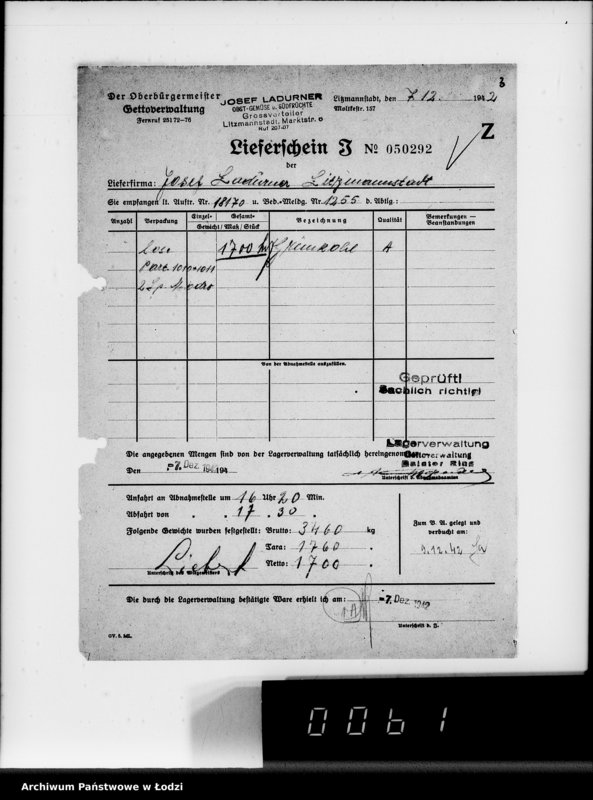 Der Oberbürgermeister
Gettoverwaltung
Fernruf 251 72–76
JOSEF LADURNER
OBST-GEMÜSE u. SÜDFRÜCHTE
Grossverteiler
Litzmannstadt, Marktstr. 6
Ruf 207-07
Litzmannstadt, den 7. 12. 1942
Moltkestr. 157
Z
Lieferschein J № 050292
der
Lieferfirma: Josef Ladurner Litzmannstadt
Sie empfangen lt. Auftr. Nr. 18170 u. Bed.-Meldg. Nr. 1255 d. Abtlg.:
Anzahl Verpackung Einzel- Gesamt- Bezeichnung Qualität Bemerkungen — Beanstandungen
Gewicht / Maß / Stück
lose 1700 kg Grünkohl A
Part. 1010-1011
Von der Abnahmestelle auszufüllen.
Geprüft!
Sachlich richtig!
Die angegebenen Mengen sind von der Lagerverwaltung tatsächlich hereingenommen.
Lagerverwaltung
Gettoverwaltung
Balster Ring
Den -7. Dez. 1942 194
Unterschrift d. Abnahmebeamten
Anfahrt an Abnahmestelle um 16 Uhr 20 Min.
Abfahrt von . . 17 . 30 .
Folgende Gewichte wurden festgestellt: Brutto: 3460 kg
Tara: 1760 .
Netto: 1700 .
Unterschrift des Wiegemeisters
Zum B. A. gelegt und
verbucht am:
9.12.42
Die durch die Lagerverwaltung bestätigte Ware erhielt ich am: -7. Dez. 1942
Unterschrift d. J.
GV. 5. 342.
0061
Archiwum Państwowe w Łodzi